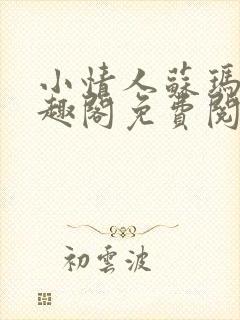 小情人蘇瑪
趣閣免費閱
初雲波